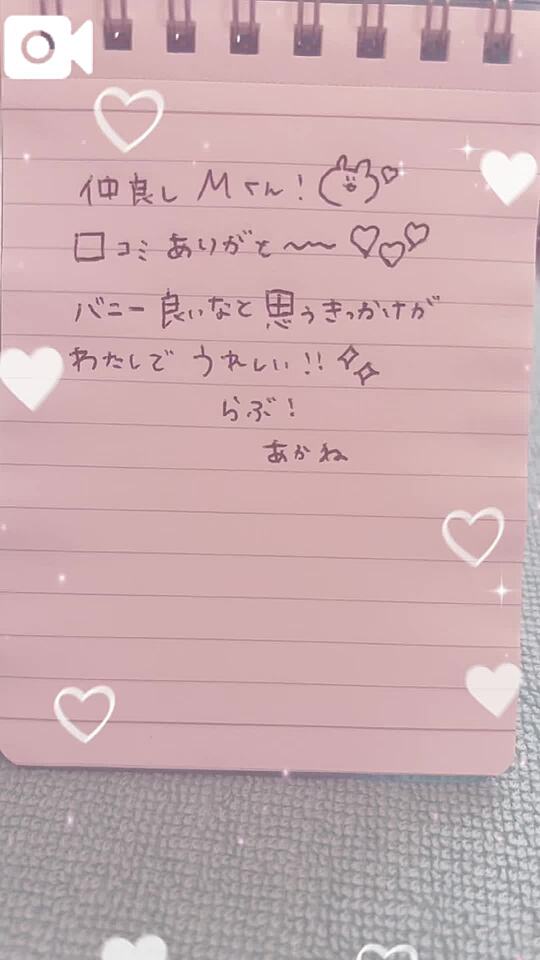 仲良し Mくん!
口コミ ありがと〜〜 ♡♡♡
バニー良いなと思うきっかけが
わたしで うれしい!!
らぶ!
あかね